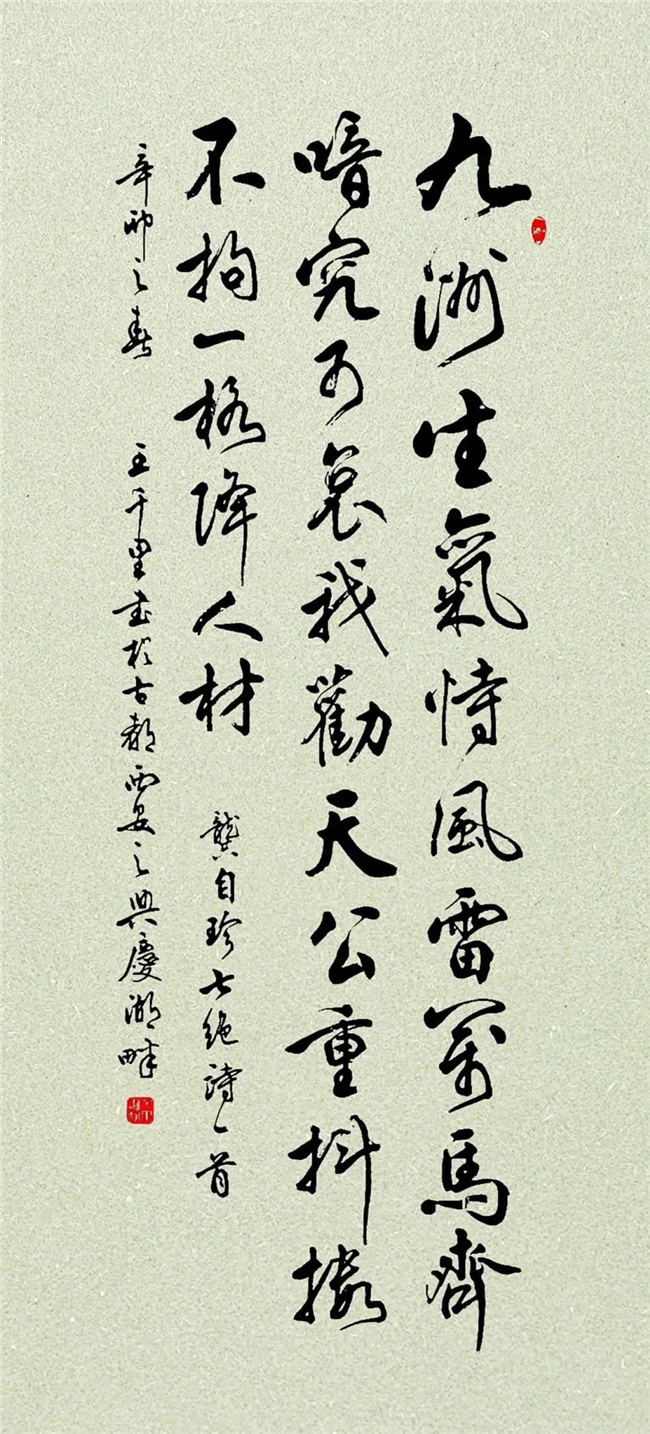 九洲生氣恃風雷萬馬齊
喑究可哀我勸天公重抖擻
不拘一格降人材
龔自珍七绝詩一首
辛卯之春 王千里書於古都西安之興慶湖畔